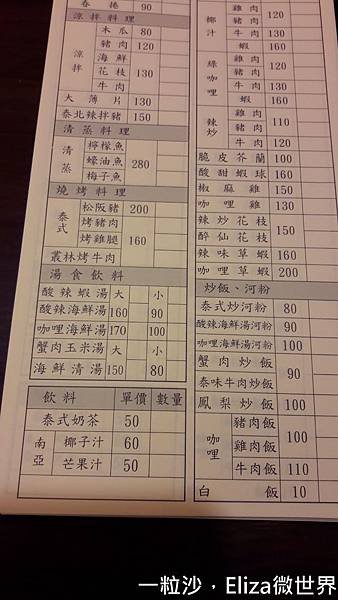 春捲 90
涼拌料理
涼拌 木瓜 80
豬肉 120
海鮮
花枝 130
牛肉
大薄片 130
泰北辣拌豬 150
清蒸料理
清蒸 檸檬魚
蠔油魚 280
梅子魚
燒烤料理
泰式 松阪豬 200
烤豬肉
烤雞腿 160
叢林烤牛肉
湯食飲料
酸辣蝦湯 大 小
酸辣海鮮湯 160 90
咖哩海鮮湯 170 100
蟹肉玉米湯 大 小
海鮮清湯 150 80
飲料 單價 數量
泰式奶茶 50
南亞 椰子汁 60
芒果汁 50
椰汁 雞肉
豬肉 120
牛肉
蝦 160
綠咖哩 雞肉
豬肉 120
牛肉
蝦 160
辣炒 雞肉
豬肉 110
牛肉 120
脆皮芥蘭 100
酸甜蝦球 160
椒麻雞 150
咖哩雞 130
辣炒花枝
醉仙花枝 150
辣味草蝦
咖哩草蝦 200
炒飯、河粉
泰式炒河粉 80
酸辣海鮮湯河粉 90
咖哩海鮮湯河粉 100
蟹肉炒飯
泰味牛肉炒飯 90
鳳梨炒飯 100
咖哩 豬肉飯
雞肉飯 100
牛肉飯 110
白飯 10
一粒沙，Eliza微世界